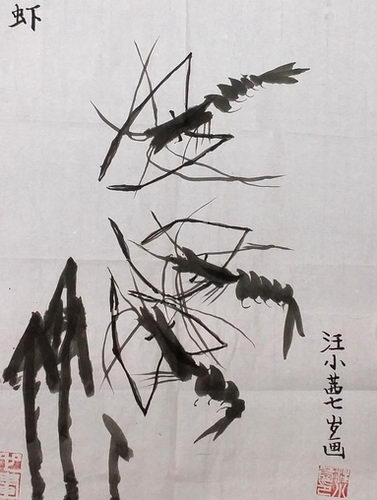 虾
汪小茜七岁画